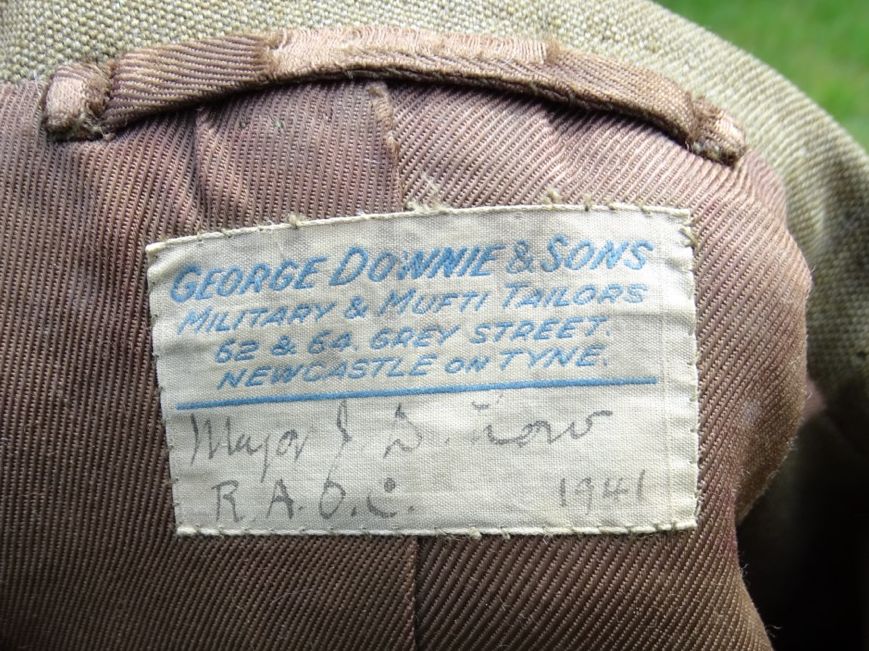 GEORGE DOWNIE & SONS
MILITARY & MUFTI TAILORS
62 & 64, GREY STREET.
NEWCASTLE ON TYNE.
Major J. D.
R.A.O.C. 1941